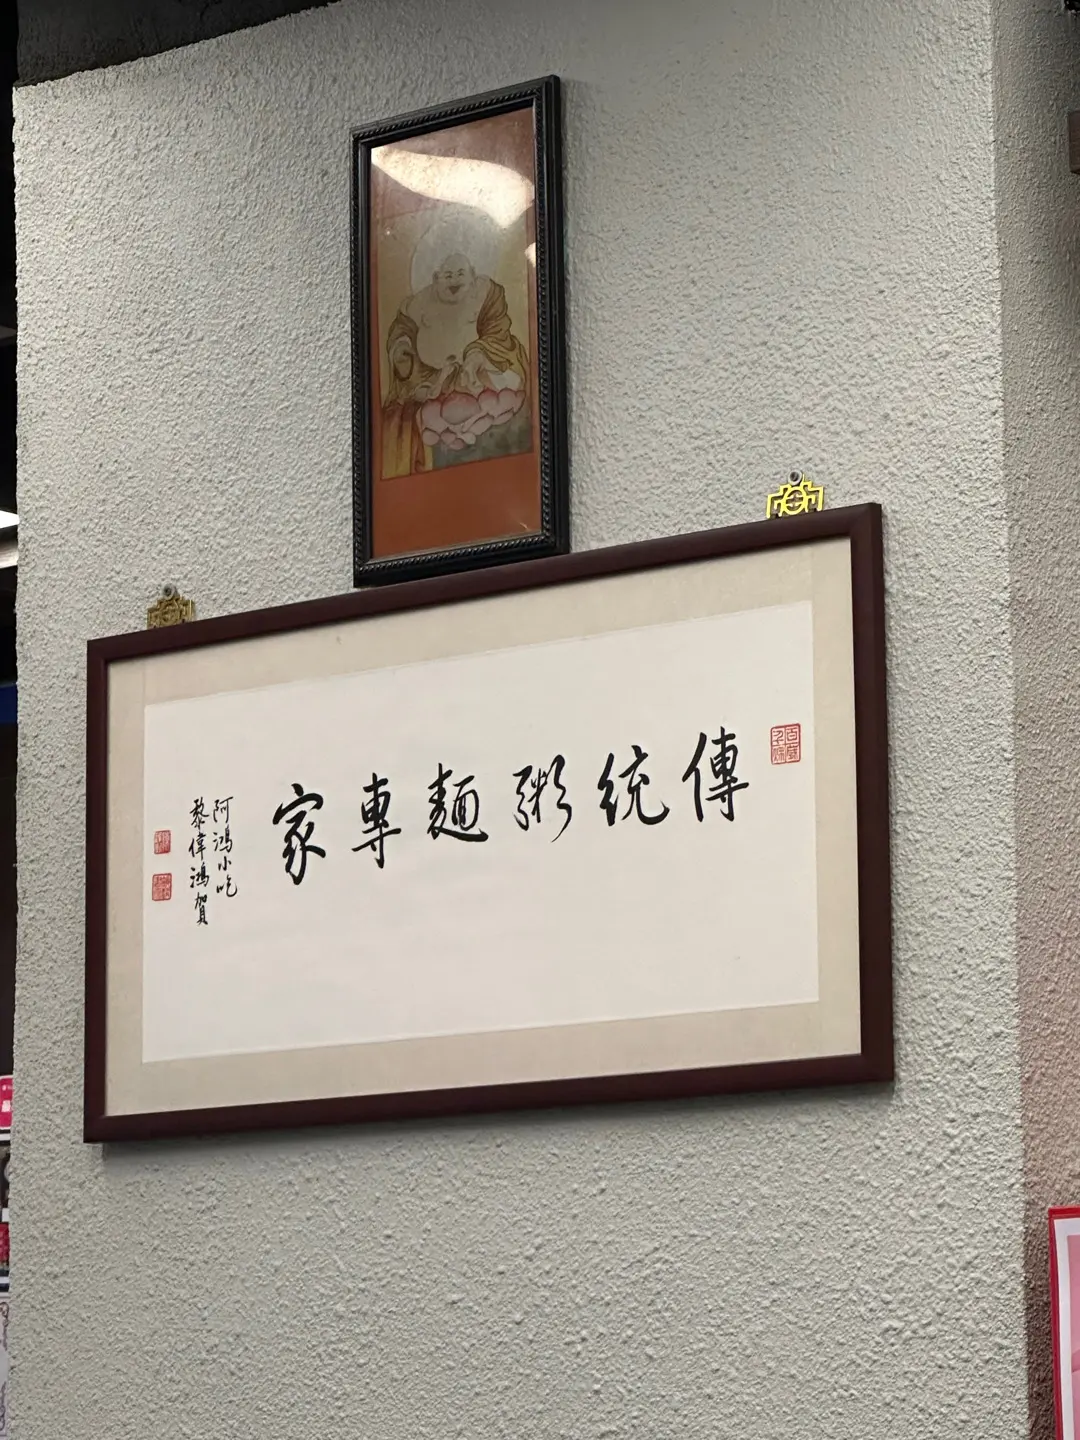 傳統粥麵專家
阿鴻小吃
黎偉鴻賀